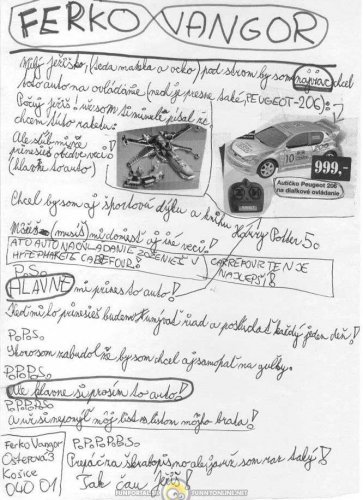 FERKO VANGOR
Milý ježiško, (teda mamka a ocko) pod strom by som najviac chcel
toto auto na ovládanie (nech je presne také, PEUGEOT-206)!
Počuj ježiš! včera som ti minule písal že
chcem túto raketu.
Ale sľúb mi že
prinesieš obe dve veci
(hlavne to auto)
999,-
Autíčko Peugeot 206
na diaľkové ovládanie
Chcel by som aj športovú dýku a knihu Harry Potter 5.
Môžeš (musíš) mi doniesť aj iné veci!
A TO AUTO NA OVLÁDANIE ZOŽENIEŠ V
HYPERMARKETE CAREFOUR!
CARREFOUR TEN JE
NAJLEPŠÍ!
P.S.
HLAVNE mi prines to auto!
Keď mi to prinesieš budem umývať riad a poslúchať každý jeden deň!
P.P.S.
Skoro som zabudol že by som chcel aj samopal na guľky.
P.P.P.S.
Ale hlavne si prosím to auto!
P.P.P.P.S.
A uži si nepomýľ môj list s listom môjho brata!
Ferko Vangor
Osterova 3
Košice
040 01
P.P.P.P.P.S.
Prepáč na škrabopisno ale ja už som raz taký!
Tak čau Ježiš!